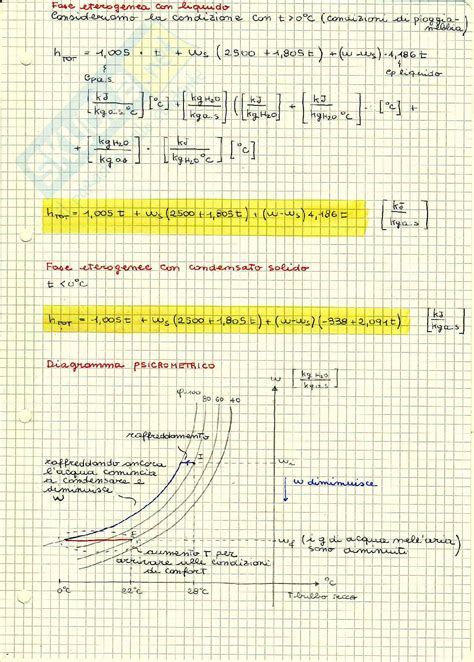 Fase eterogenea con liquido
Consideriamo la condizione con t>0°C (condizioni di pioggia-
nebbia
h_TOT = 1,005 · t + ws (2500 + 1,805 t) + (w-ws) · 4,186 t
cp a.s. cp liquido
[kJ/kg a.s °C] [°C] + [kg H2O/kg a.s] ([kJ/kg H2O] + [kJ/kg H2O °C] · [°C]) +
+ [kg H2O/kg as] · [kJ/kg H2O °C] [°C]
h_TOT = 1,005 t + ws (2500 + 1,805 t) + (w-ws) 4,186 t [kJ/kg a.s]
Fase eterogenee con condensato solido
t < 0°C
h_TOT = 1,005 t + ws (2500 + 1,805 t) + (w-ws) (-338 + 2,091 t) [kJ/kg as]
Diagramma PSICROMETRICO
w [kg H2O/kg a.s]
φ=100 80 60 40
raffreddamento
I
raffreddando ancora
l'acqua comincia
a condensare e
diminuisce
w
w diminuisce
(i g di acqua nell'aria)
sono diminuiti
aumento T per
arrivare alle condizioni
di comfort
°C
0°C 22°C 28°C T bulbo secco